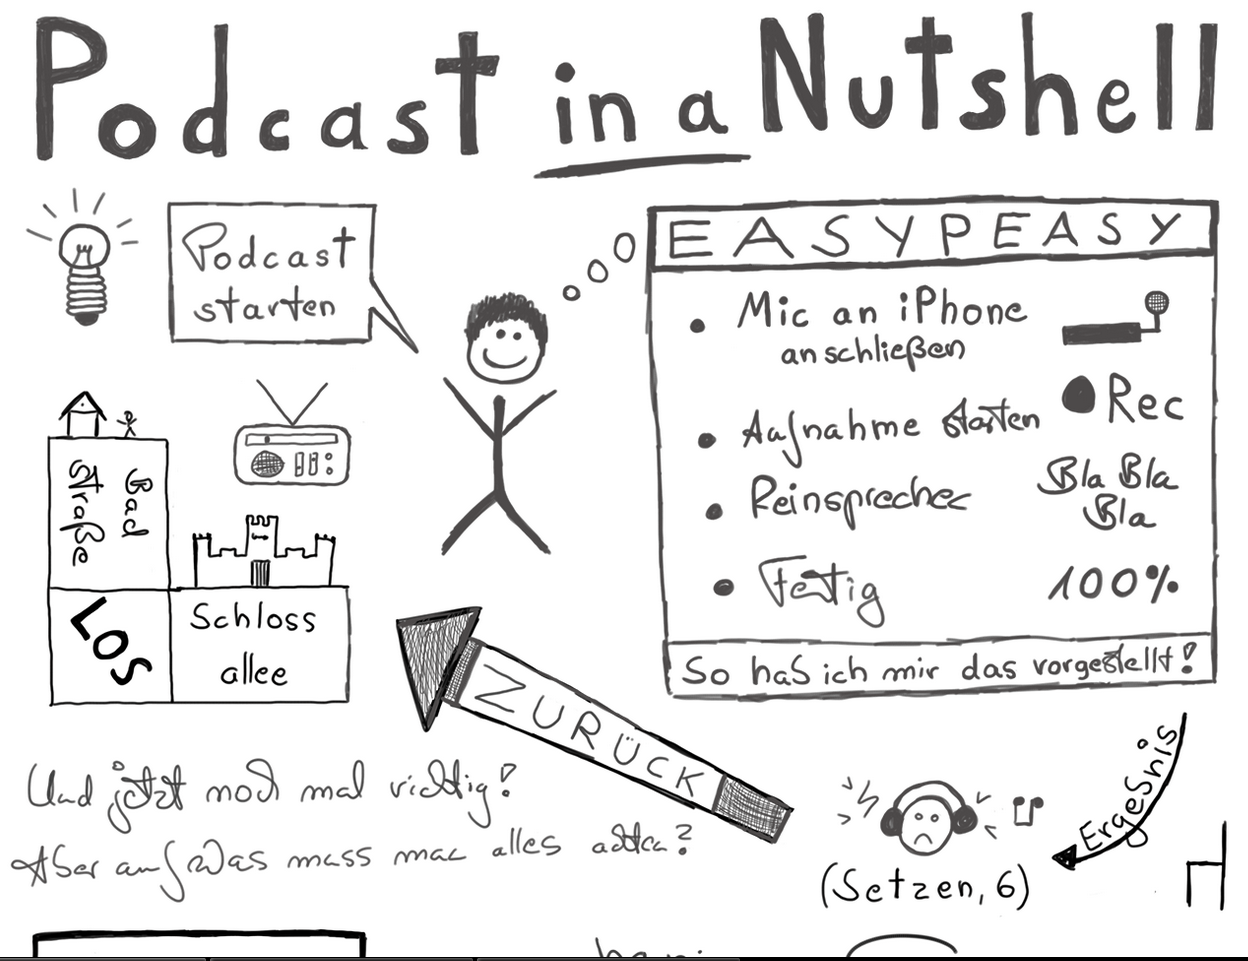 Podcast in a Nutshell
Podcast
starten
EASYPEASY
Mic an iPhone
anschließen
Aufnahme starten
Rec
Reinsprechen
Bla Bla
Bla
Fertig
100%
So hab ich mir das vorgestellt!
Bad
straße
LOS
Schloss
allee
ZURÜCK
Ergebnis
(Setzen, 6)
Und jetzt noch mal richtig!
Aber auf was muss man alles achten?